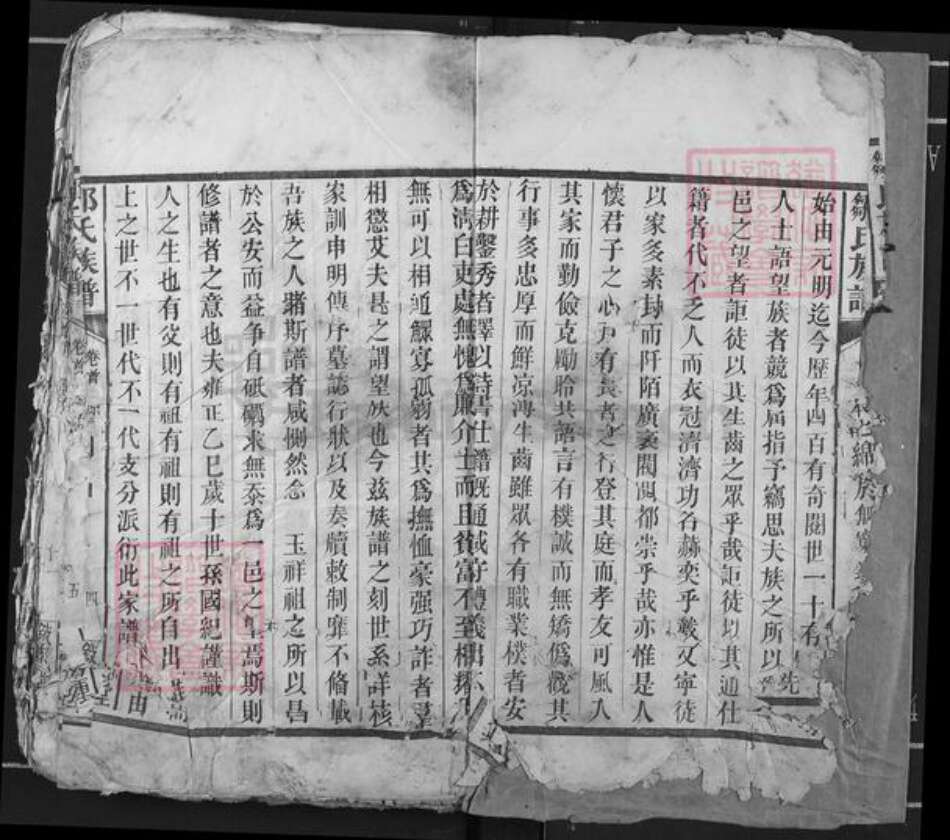 鄒氏族譜
始由元明迄今歷年四百有奇閱世一十有
人士語望族者競爲屈指予竊思夫族之所以
邑之望者詎徒以其生齒之眾乎哉詎徒以其通仕
籍者代不乏人而衣冠濟濟功名赫奕乎哉又寧徒
以家多素封而阡陌廣袤閥閱都崇乎哉亦惟是人
懷君子之心戶有長者之行登其庭而孝友可風入
其家而勤儉克勵聆其語言有樸誠而無矯僞稽其
行事多忠厚而鮮凉薄生齒雖眾各有職業樸者安
於耕鑿秀者繹以詩書仕譜既通誠守禮義出
爲清白吏處無愧爲廉介士而且貧富不至相耀
無可以相通鰥寡孤弱者其爲撫恤豪强巧詐者羣
相懲艾夫是之謂望族也今茲族譜之刻世系詳核
家訓申明傳序墓誌行狀以及奏牘敕制靡不備載
吾族之人睹斯譜者咸惻然念 玉祥祖之所以昌
於公安而益爭自砥礪求無忝爲一邑之望焉斯則
修譜者之意也夫雍正乙巳歲十世孫國紀謹識
人之生也有父則有祖有祖則有祖之所自出
上之世不一世代不一代支分派衍此家譜 由
鄒氏族譜 卷首